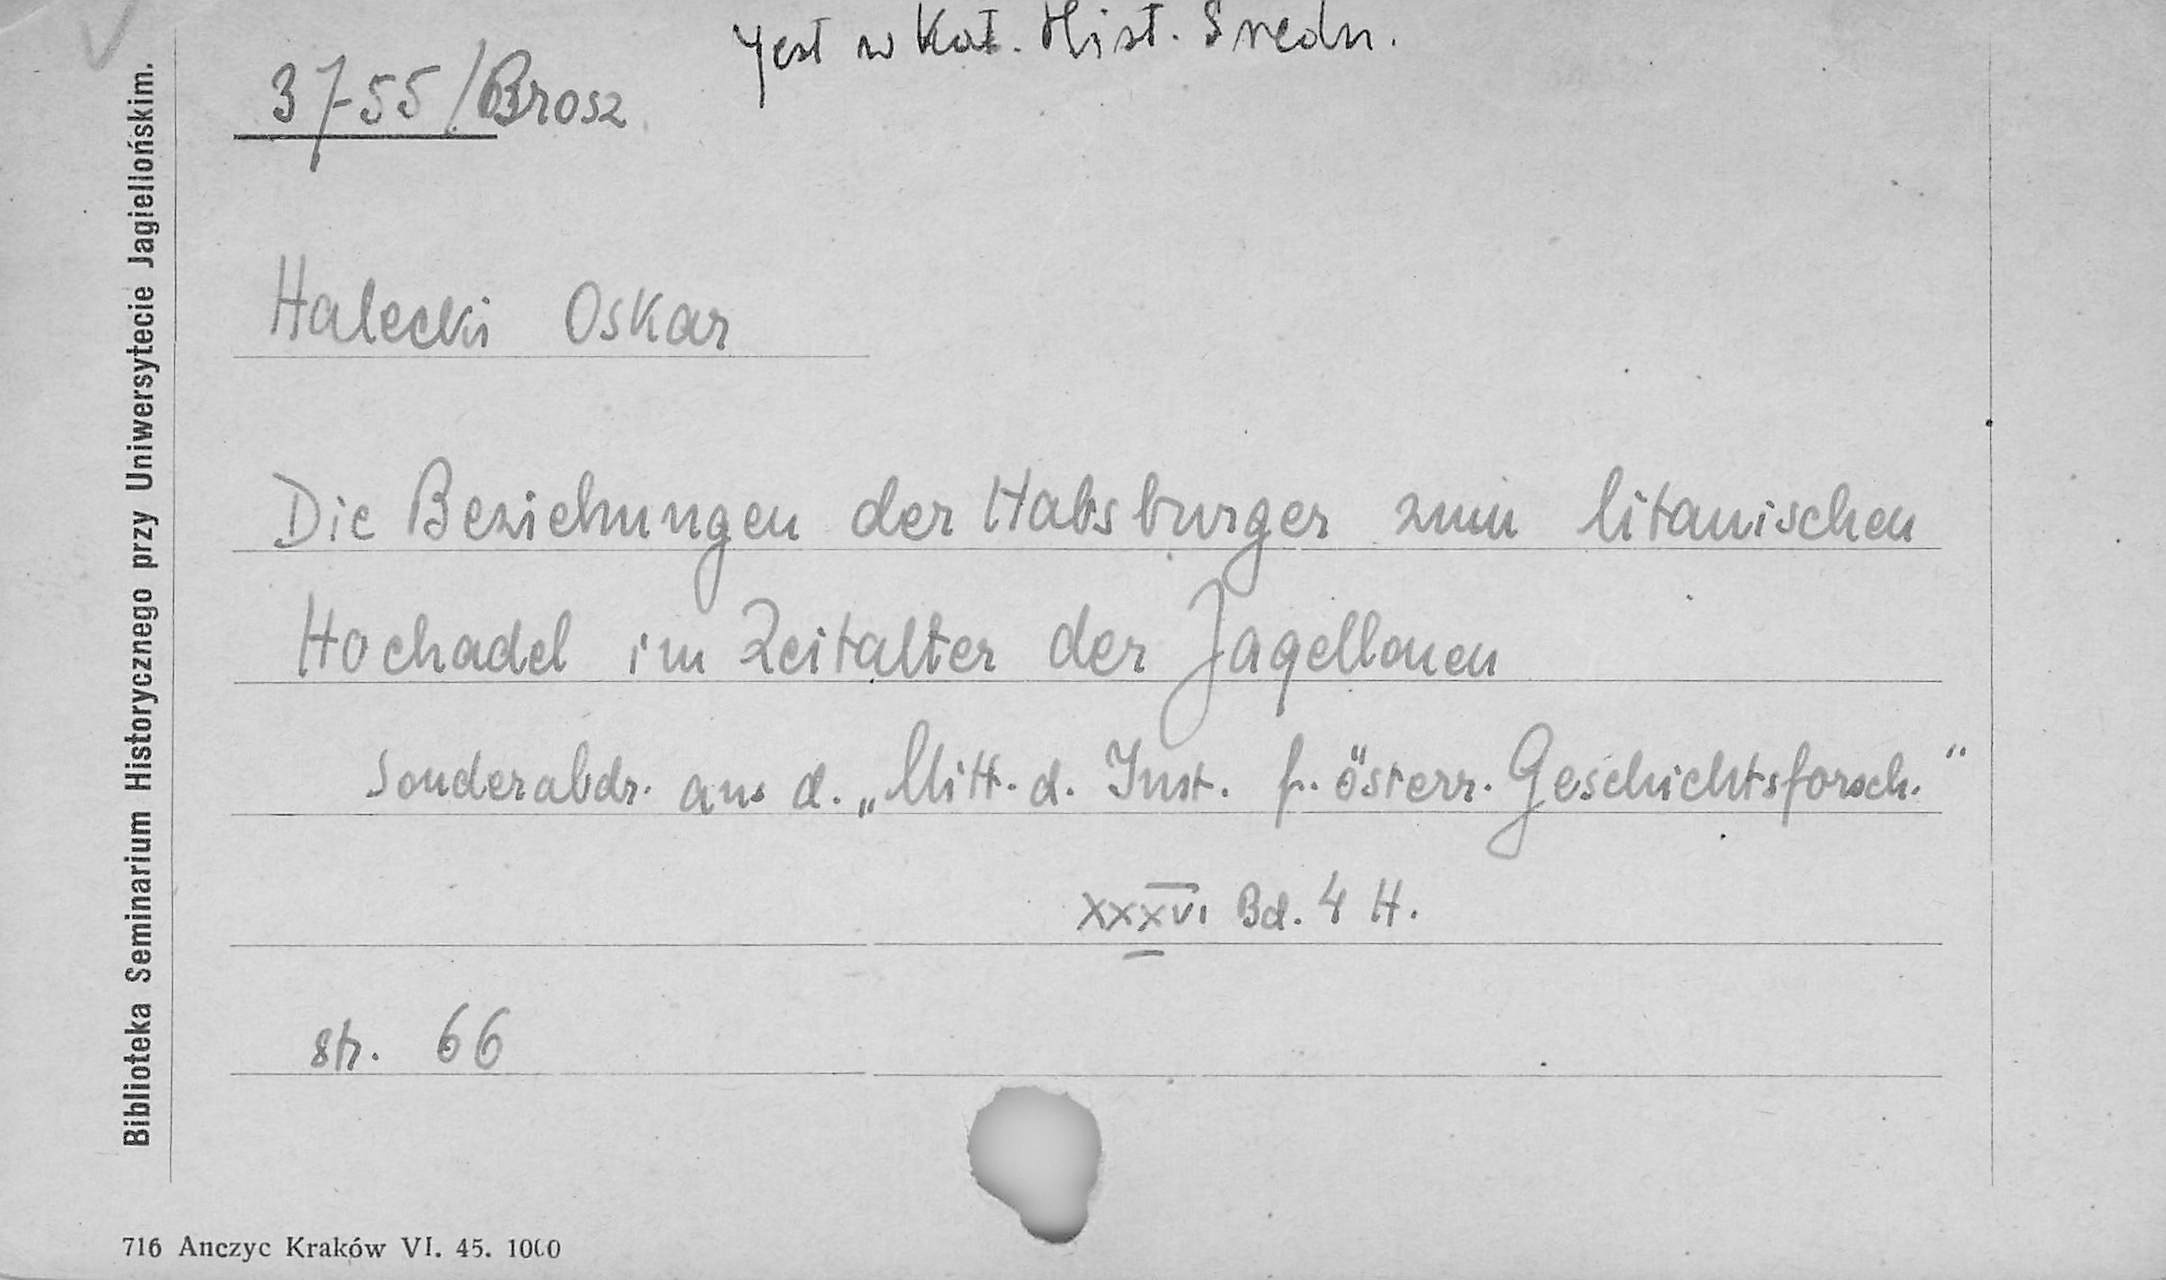 Jest w Kat. Hist. Średn.
37-55/Brosz
Halecki Oskar
Die Beziehungen der Habsburger zum litauischen
Hochadel im Zeitalter der Jagellonen
Sonderabdr. aus d. „Mitt. d. Inst. f. österr. Geschichtsforsch."
XXXVI Bd. 4 H.
str. 66
Biblioteka Seminarium Historycznego przy Uniwersytecie Jagiellońskim.
716 Anczyc Kraków VI. 45. 1000